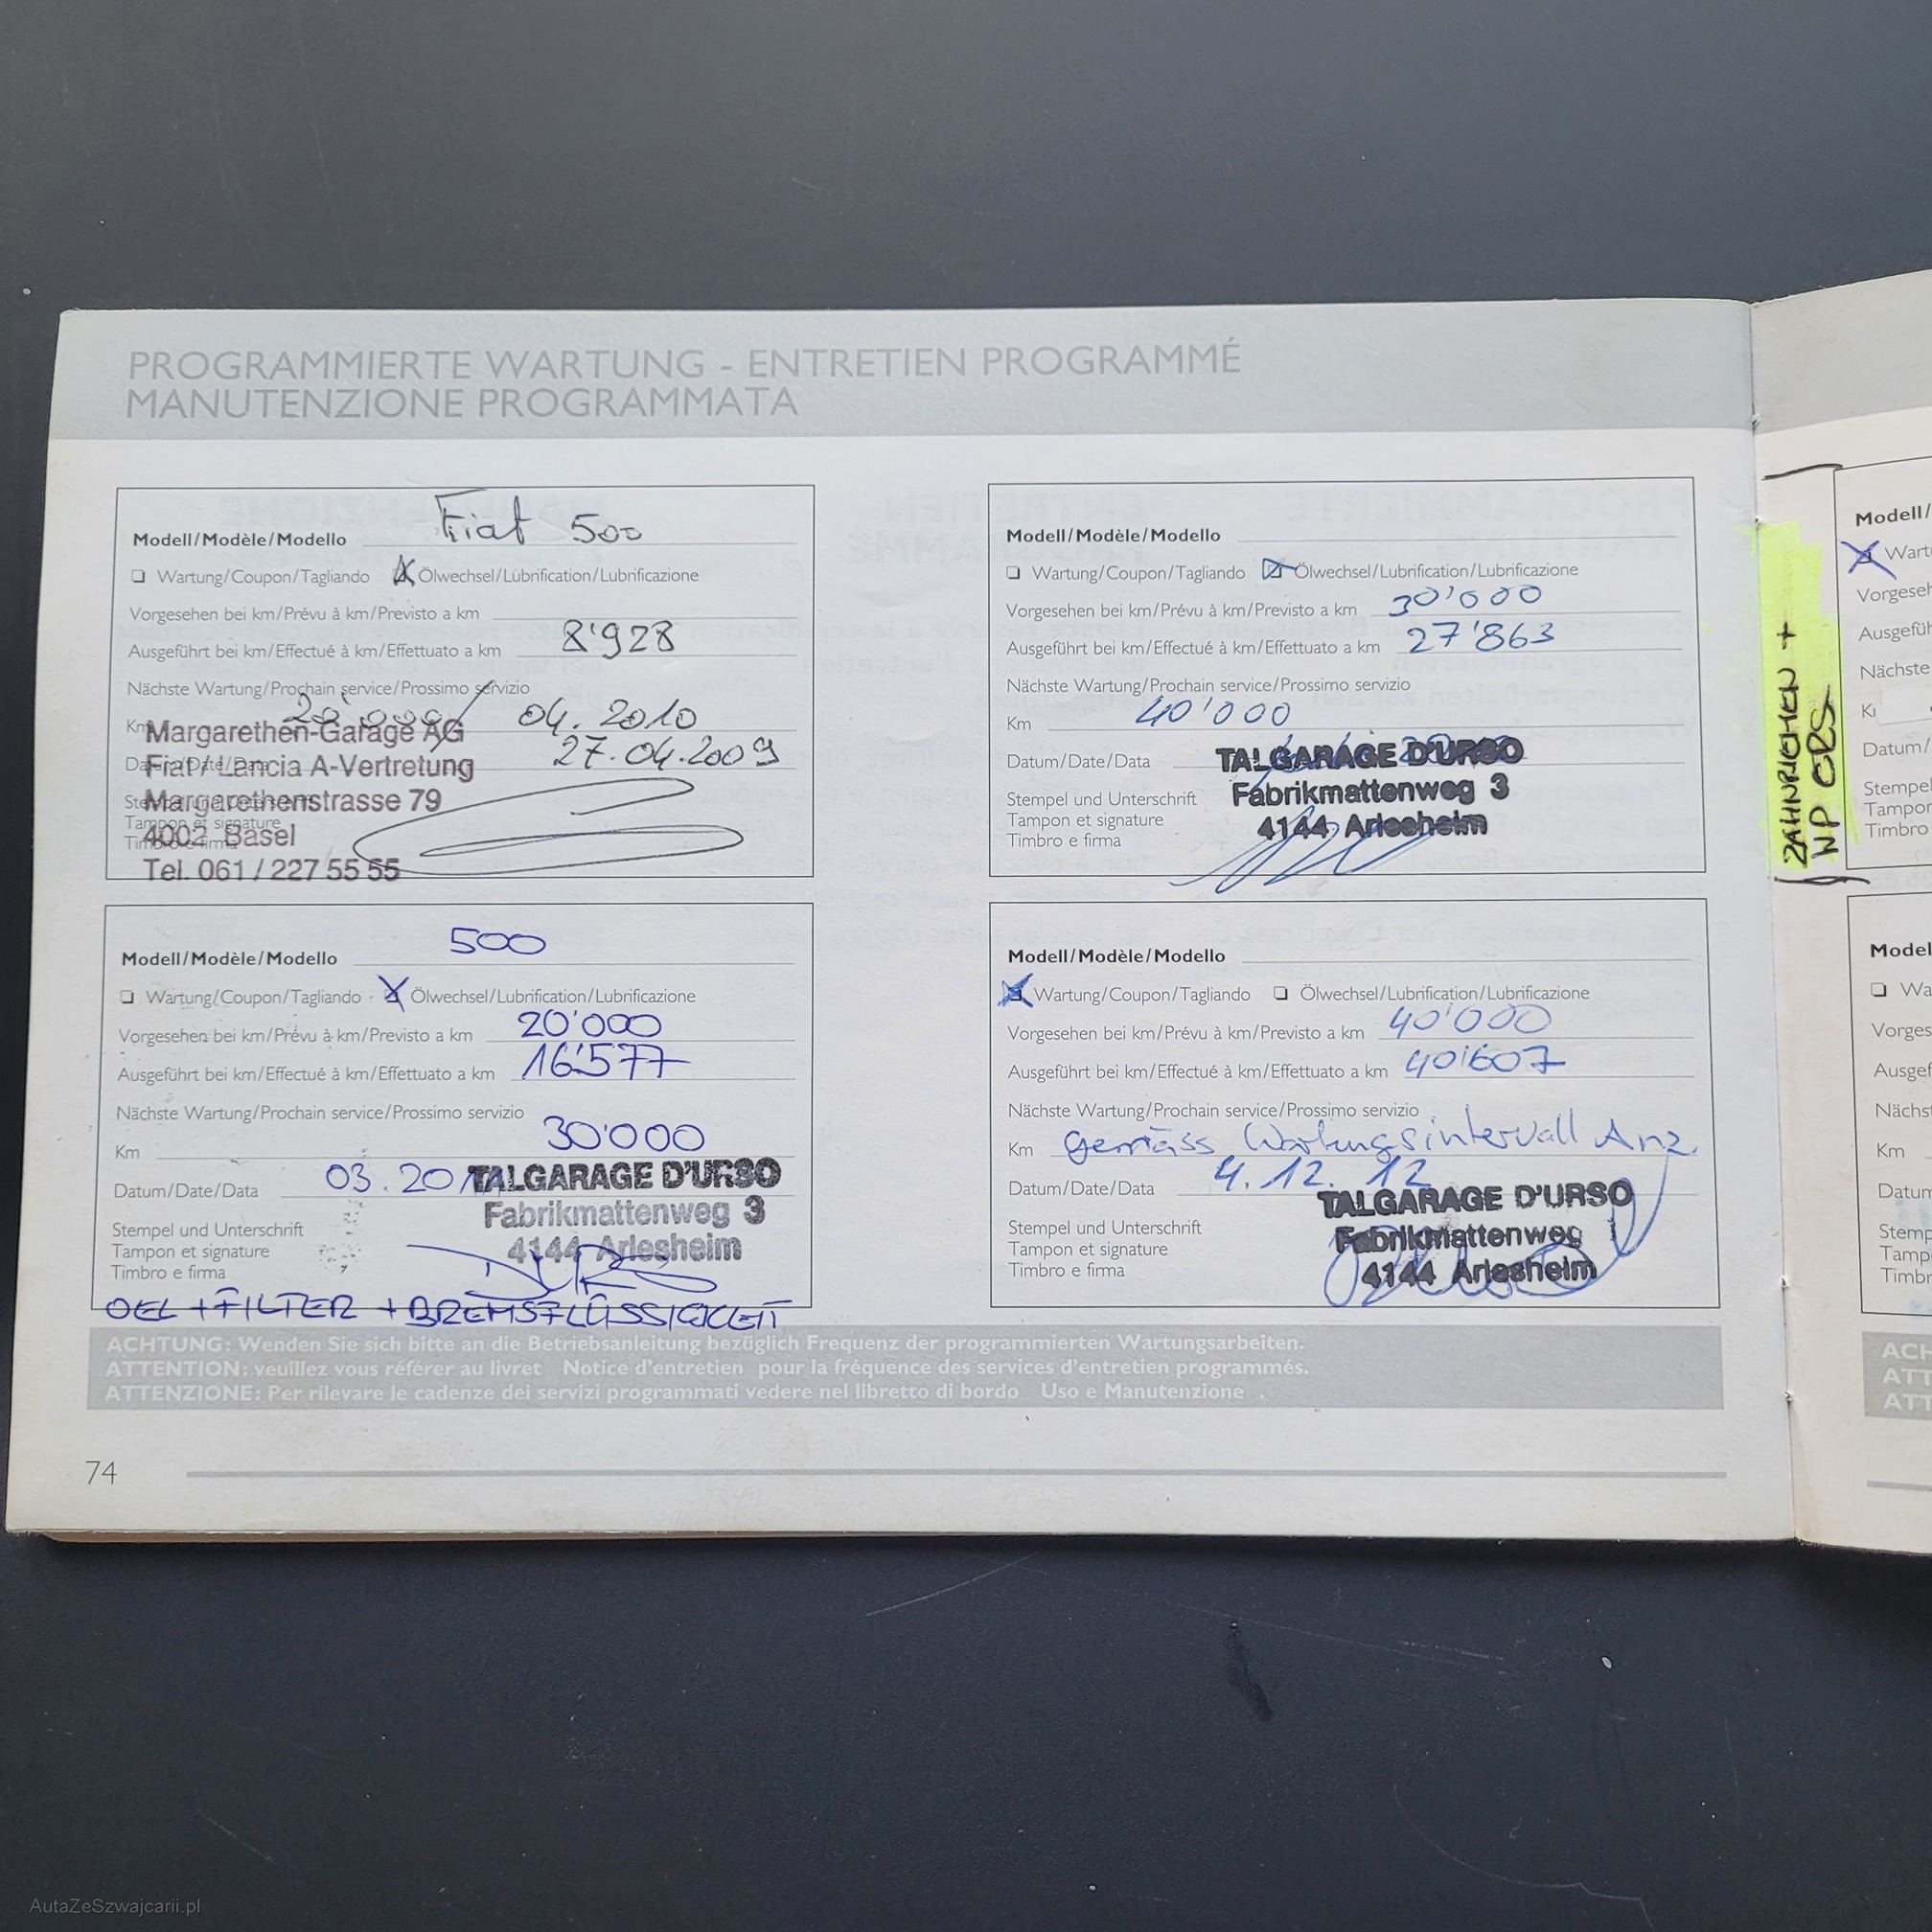 PROGRAMMIERTE WARTUNG - ENTRETIEN PROGRAMMÉ
MANUTENZIONE PROGRAMMATA
Modell/Modèle/Modello Fiat 500
Wartung/Coupon/Tagliando Ölwechsel/Lubrification/Lubrificazione
Vorgesehen bei km/Prévu à km/Previsto a km
Ausgeführt bei km/Effectué à km/Effettuato a km 8'928
Nächste Wartung/Prochain service/Prossimo servizio
Km 20'000/ 04.2010
Margarethen-Garage AG
Datum/Date/Data 27.04.2009
Fiat / Lancia A-Vertretung
Stempel und Unterschrift
Margarethenstrasse 79
Tampon et signature
4002 Basel
Timbro e firma
Tel. 061 / 227 55 55
Modell/Modèle/Modello 500
Wartung/Coupon/Tagliando Ölwechsel/Lubrification/Lubrificazione
Vorgesehen bei km/Prévu à km/Previsto a km 20'000
Ausgeführt bei km/Effectué à km/Effettuato a km 16'577
Nächste Wartung/Prochain service/Prossimo servizio
Km 30'000
Datum/Date/Data
TALGARAGE D'URSO
Fabrikmattenweg 3
4144 Arlesheim
Stempel und Unterschrift
Tampon et signature
Timbro e firma
OEL + FILTER + BREMSFLÜSSIGKEIT
Modell/Modèle/Modello
Wartung/Coupon/Tagliando Ölwechsel/Lubrification/Lubrificazione
Vorgesehen bei km/Prévu à km/Previsto a km 30'000
Ausgeführt bei km/Effectué à km/Effettuato a km 27'863
Nächste Wartung/Prochain service/Prossimo servizio
Km 40'000
Datum/Date/Data
TALGARAGE D'URSO
Fabrikmattenweg 3
4144 Arlesheim
Stempel und Unterschrift
Tampon et signature
Timbro e firma
Modell/Modèle/Modello
Wartung/Coupon/Tagliando Ölwechsel/Lubrification/Lubrificazione
Vorgesehen bei km/Prévu à km/Previsto a km 40'000
Ausgeführt bei km/Effectué à km/Effettuato a km 40'607
Nächste Wartung/Prochain service/Prossimo servizio
Km gemäss Wartungsintervall Anz.
Datum/Date/Data 4.12.12
TALGARAGE D'URSO
Fabrikmattenweg
4144 Arlesheim
Stempel und Unterschrift
Tampon et signature
Timbro e firma
ACHTUNG: Wenden Sie sich bitte an die Betriebsanleitung bezüglich Frequenz der programmierten Wartungsarbeiten.
ATTENTION: veuillez vous référer au livret Notice d'entretien pour la fréquence des services d'entretien programmés.
ATTENZIONE: Per rilevare le cadenze dei servizi programmati vedere nel libretto di bordo Uso e Manutenzione .
74
ZAHNRIEMEN +
WP ERS.
Modell/
Wart
Vorgeseh
Ausgefüh
Nächste
Datum/
Stempel
Tampon
Timbro
Model
Wa
Vorges
Ausgef
Nächst
Km
Datum
Stemp
Tamp
Timbr
ACH
ATT
ATT
AutaZeSzwajcarii.pl